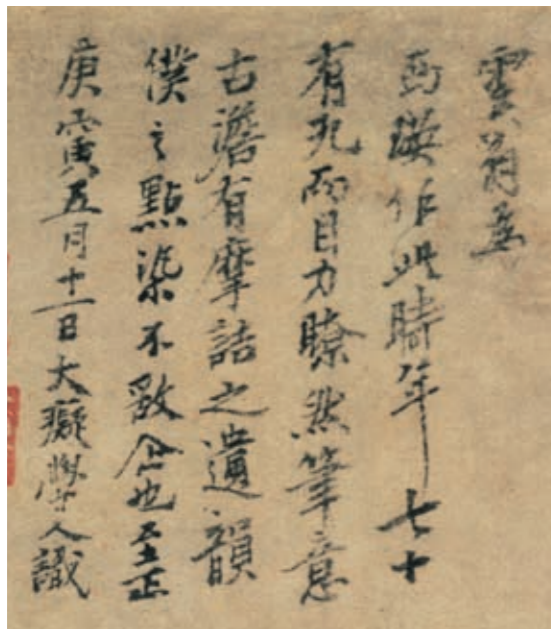 雲翁為
西瑛作此時年七十
有九而目力瞭然筆意
古澹有摩詰之遺韻
僕之點染不敢企也至正
庚寅五月十一日大癡學人識